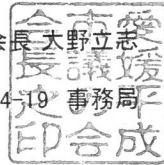 会長 大野立志
4-19 事務局
愛媛
成
会長之印